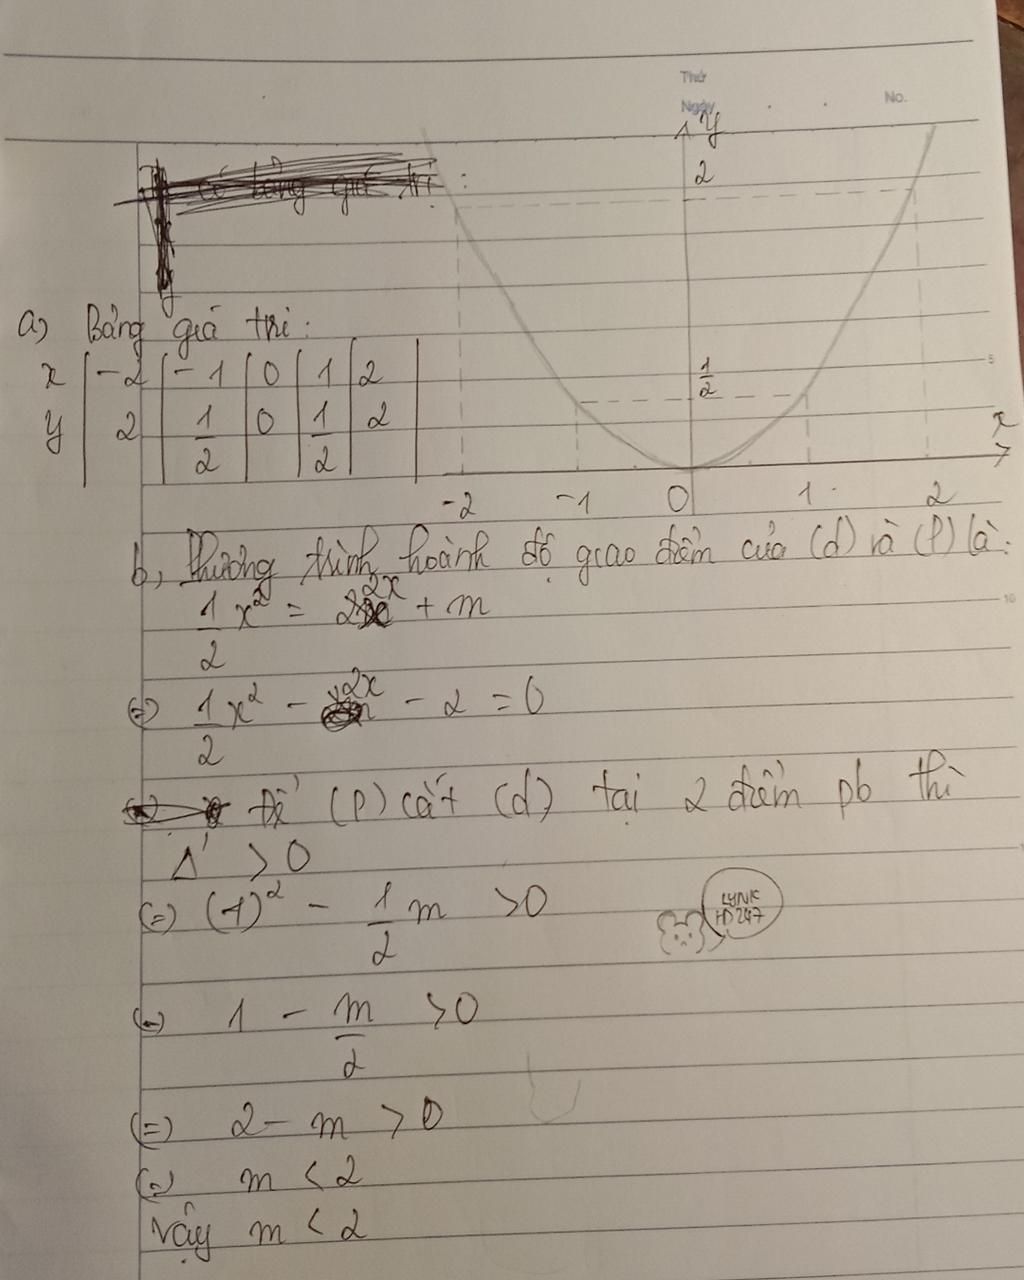 Thứ
Ngày No.
y
2
a) Bảng giá trị:
x | -2 | -1 | 0 | 1 | 2
y | 2 | 1/2 | 0 | 1/2 | 2
1/2
x
-2 -1 0 1 2
5
b, Phương trình hoành độ giao điểm của (d) và (P) là:
1/2 x² = 2x + m
10
(=) 1/2 x² - 2x - 2 = 0
Để (P) cắt (d) tại 2 điểm pb thì
Δ' > 0
(=) (-1)² - 1/2 m > 0
LYNK
HD247
(=) 1 - m/2 > 0
(=) 2 - m > 0
(=) m < 2
Vậy m < 2